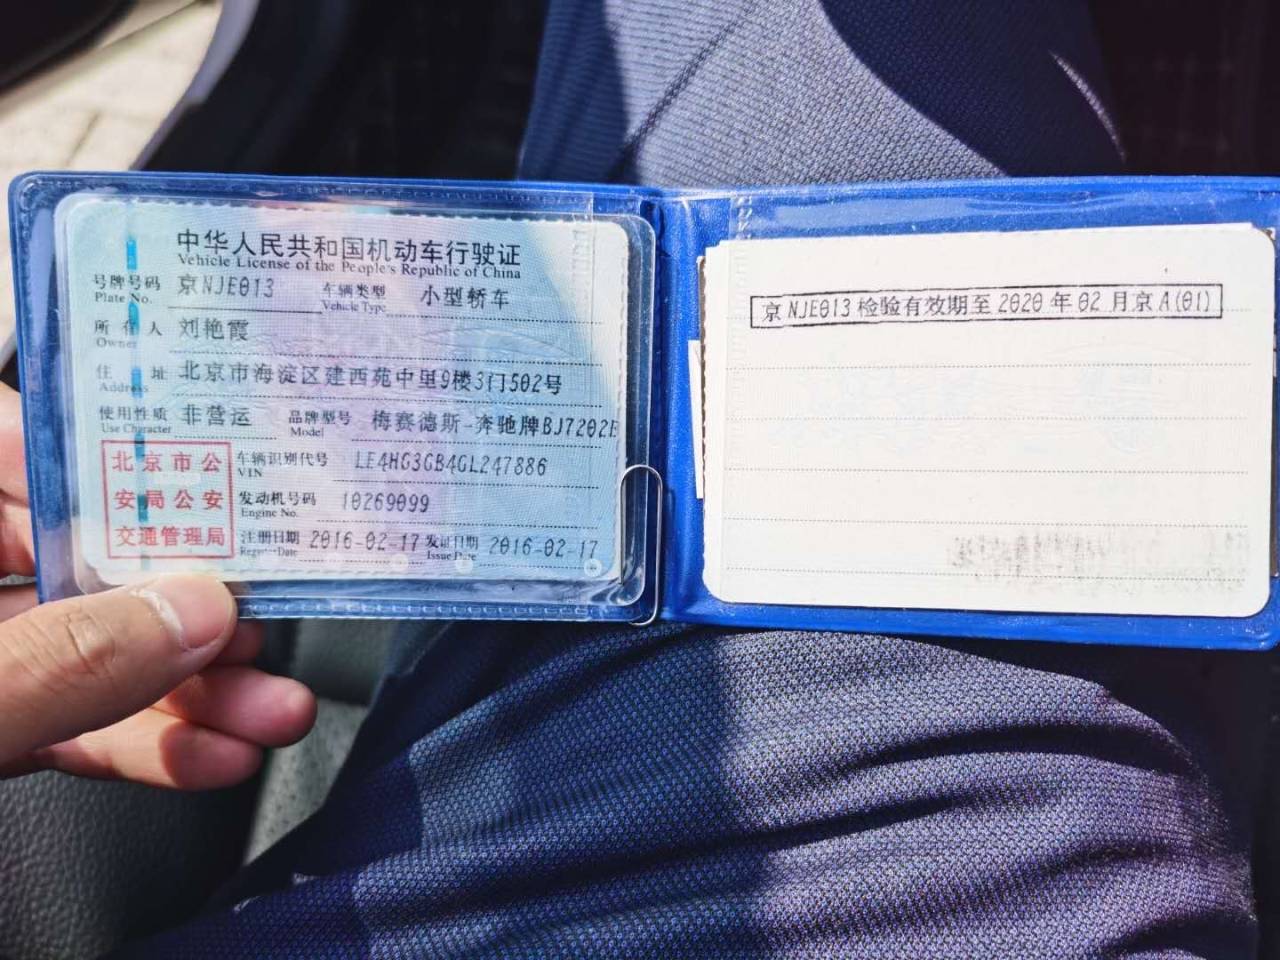 中华人民共和国机动车行驶证
Vehicle License of the People's Republic of China
号牌号码 京NJE013 车辆类型 小型轿车
Plate No. Vehicle Type
所有人 刘艳霞
Owner
住址 北京市海淀区建西苑中里9楼3门502号
Address
使用性质 非营运 品牌型号 梅赛德斯-奔驰牌BJ7202E
Use Character Model
北京市公
安局公安
交通管理局
车辆识别代号 LE4HG3GB4GL247886
VIN
发动机号码 10269099
Engine No.
注册日期 2016-02-17 发证日期 2016-02-17
Register Date Issue Date
京NJE013检验有效期至2020年02月京A(01)